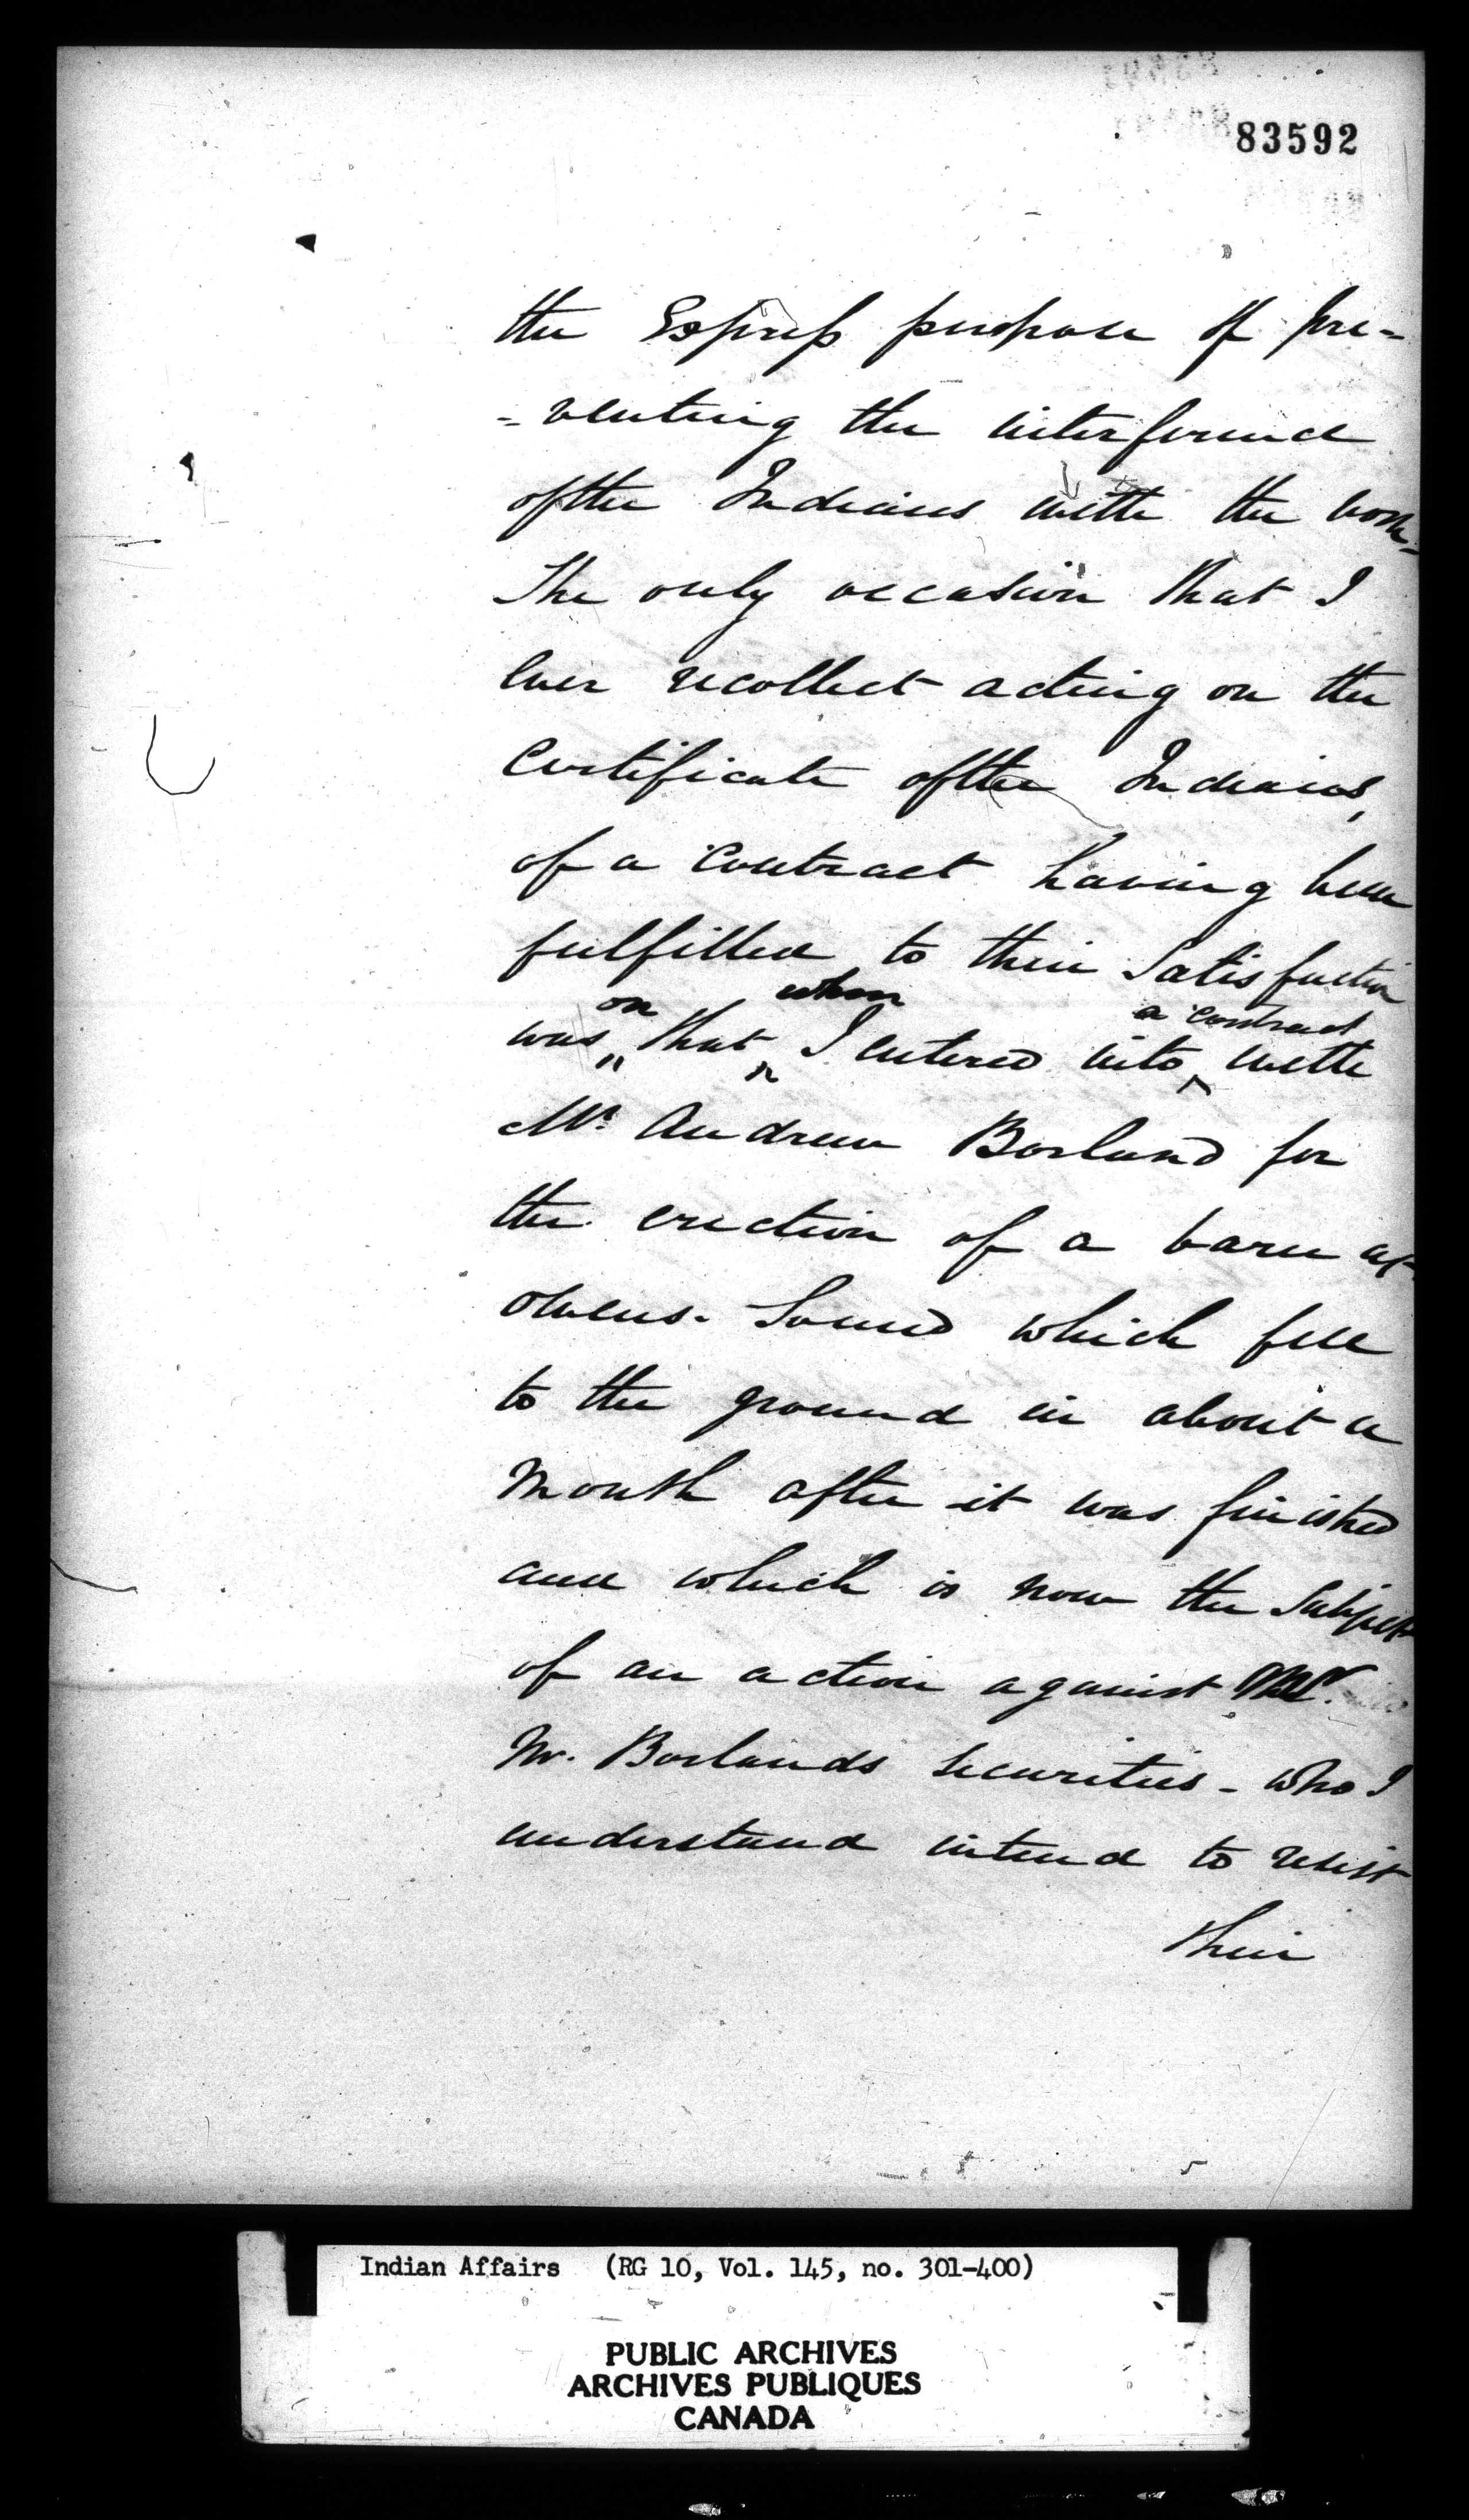 83592
the Express purpose of pre=
=venting the interference
of the Indians with the work.
The only occasion that I
ever recollect acting on the
Certificate of the Indians,
of a Contract having been
fulfilled to their Satisfaction
was on that when I entered into a contract with
Mr. Andrew Borland for
the erection of a barn at
Owens. Sound which fell
to the ground in about a
Month after it was finished
and which is now the Subject
of an action against
Mr. Borlands Securities - who I
understand intend to resist
their
Indian Affairs (RG 10, Vol. 145, no. 301-400)
PUBLIC ARCHIVES
ARCHIVES PUBLIQUES
CANADA